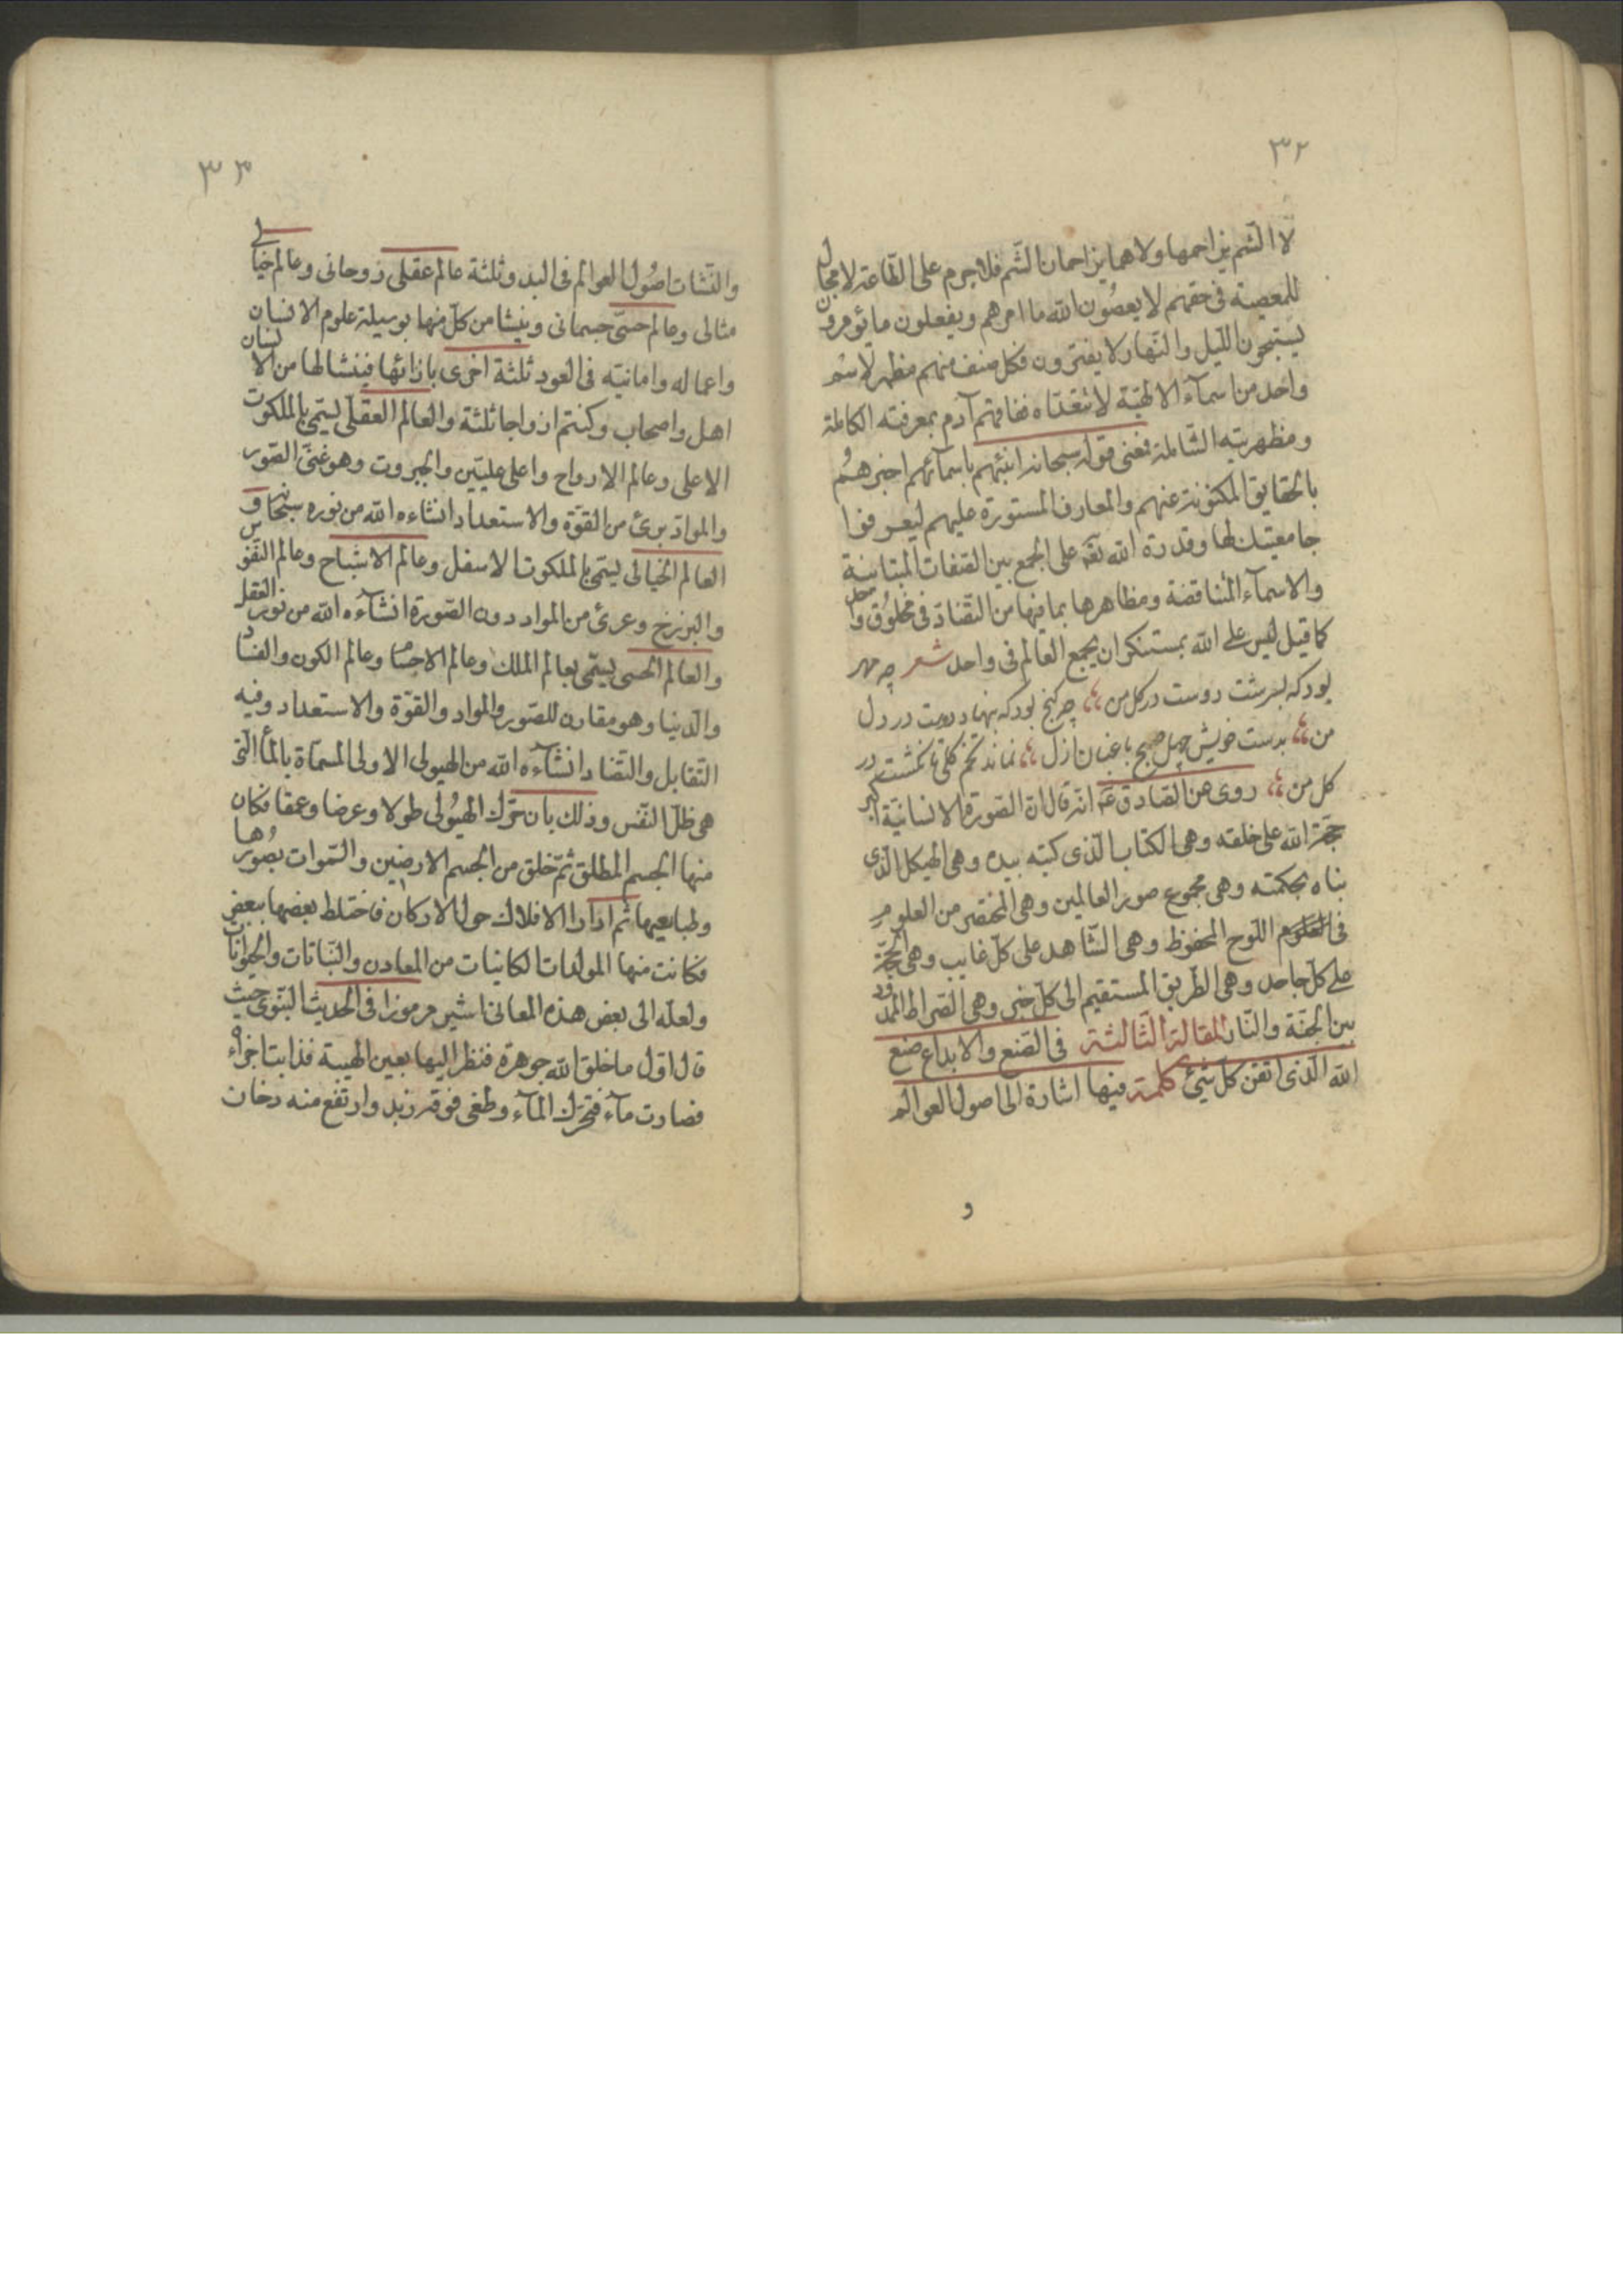 ٣٢
لا الشم يزاحمها ولا هما يزاحمان الشم فلا جرم على الطاعة لا مجال
للمعصية فى حقهم لا يعصُون الله ما امرهم ويفعلون ما يؤمرون
يسبّحون اللّيل والنّهار لا يفترون فكل صنف منهم مظهر لاسم
واحد من اسمآء الالهيّة لا يتعدّاه ففاقهم آدم بمعرفته الكاملة
ومظهريّته الشّاملة فمعنى قوله سبحانه انبئهم باسمآئهم اخبرهم
بالحقايق المكنونة عنهم والمعارف المستورة عليهم ليعرفوا
جامعيّتك لها وقدرة الله تعٓ على الجمع بين الصّفات المتباينة
والاسمآء المتناقضة ومظاهرها بما فيها من التّضادّ فى مخلوُق واحد
كما قيل ليس على الله بمستنكر ان يجمع العالم فى واحد شعر چه مهر
بود كه بسرشت دوست در كل من چه كنج بود كه بنهاد دوست در دل
من بدست خويش چهل صبح باغبان ازل نماند تخم كلى تا نكشت در
كل من روى عن الصّادق عٓ انّه قال انّ الصّورة الانسانيّة اكبر
حجّة الله على خلقه وهى الكتاب الّذى كتبه بيده وهى الهيكل الّذى
بناه بحكمته وهى مجموع صور العالمين وهى المختصر من العلوم
فى اللّوح المحفوظ وهى الشّاهد على كلّ غايب وهى الحجّة
على كلّ جاحد وهى الطّريق المستقيم الى كلّ خير وهى الصّراط الممدود
بين الجنّة والنّار المقالة الثّالثة فى الصّنع والابداع صنع
الله الّذى اتقن كلّ شئ كلمة فيها اشارة الى اصول العوالم
و
٣٣
والنّشات اصُول العوالم فى البدو ثلثة عالم عقلى روحانى وعالم خيالى
مثالى وعالم حسّى جسمانى وينشا من كلّ منها بوسيلة علوم الانسان
واعماله وامانيّه فى العود ثلثة اخرى بازائها فينشا لها من الانسان
اهل واصحاب وكنتم ازواجا ثلثة والعالم العقلى يسمّى بالملكوت
الاعلى وعالم الارواح واعلى علّيّين والجبروت وهو غنىّ الصّور
والموادّ برئ من القوّة والاستعداد انشاءه الله من نوره سبحانه و
العالم الخيالى يسمّى بالملكوت الاسفل وعالم الاشباح وعالم النّفوس
والبرزخ وعرئ من المواد دون الصّورة انشآءه الله من نور العقل
والعالم الحسى يسمّى بعالم الملك وعالم الاجسام وعالم الكون والفساد
والدّنيا وهو مقارن للصّور والمواد والقوّة والاستعداد وفيه
التّقابل والتّضاد انشآءه الله من الهيولى الاولى المسمّاة بالمآء الّتى
هى ظلّ النّفس وذلك بان حرّك الهيُولى طولا وعرضا وعمقا فكان
منها الجسم المطلق ثمّ خلق من الجسم الارضين والسّموات بصُورها
وطبايعها ثم ادار الافلاك حول الاركان فاختلط بعضها ببعض
فكانت منها المولدات الكانيات من المعادن والنّباتات والحيوانات
ولعلّه الى بعض هذه المعانى اشير مرموزا فى الحديث النّبوى حيث
قال اوّل ما خلق الله جوهرة فنظر اليها بعين الهيبة فذابت اجزاؤه
فصارت مآء فتحرّك المآء وطفى فوقه زبد وارتفع منه دخان